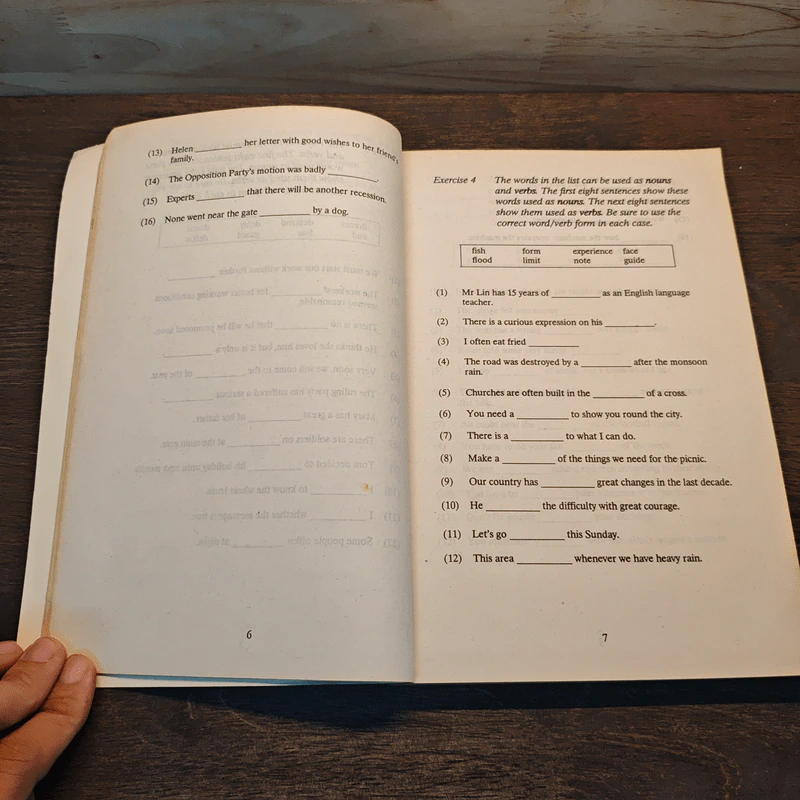 (13) Helen ________ her letter with good wishes to her friend's
family.
(14) The Opposition Party's motion was badly ________.
(15) Experts ________ that there will be another recession.
(16) None went near the gate ________ by a dog.
6
Exercise 4 The words in the list can be used as nouns
and verbs. The first eight sentences show these
words used as nouns. The next eight sentences
show them used as verbs. Be sure to use the
correct word/verb form in each case.
fish form experience face
flood limit note guide
(1) Mr Lin has 15 years of ________ as an English language
teacher.
(2) There is a curious expression on his ________.
(3) I often eat fried ________
(4) The road was destroyed by a ________ after the monsoon
rain.
(5) Churches are often built in the ________ of a cross.
(6) You need a ________ to show you round the city.
(7) There is a ________ to what I can do.
(8) Make a ________ of the things we need for the picnic.
(9) Our country has ________ great changes in the last decade.
(10) He ________ the difficulty with great courage.
(11) Let's go ________ this Sunday.
(12) This area ________ whenever we have heavy rain.
7